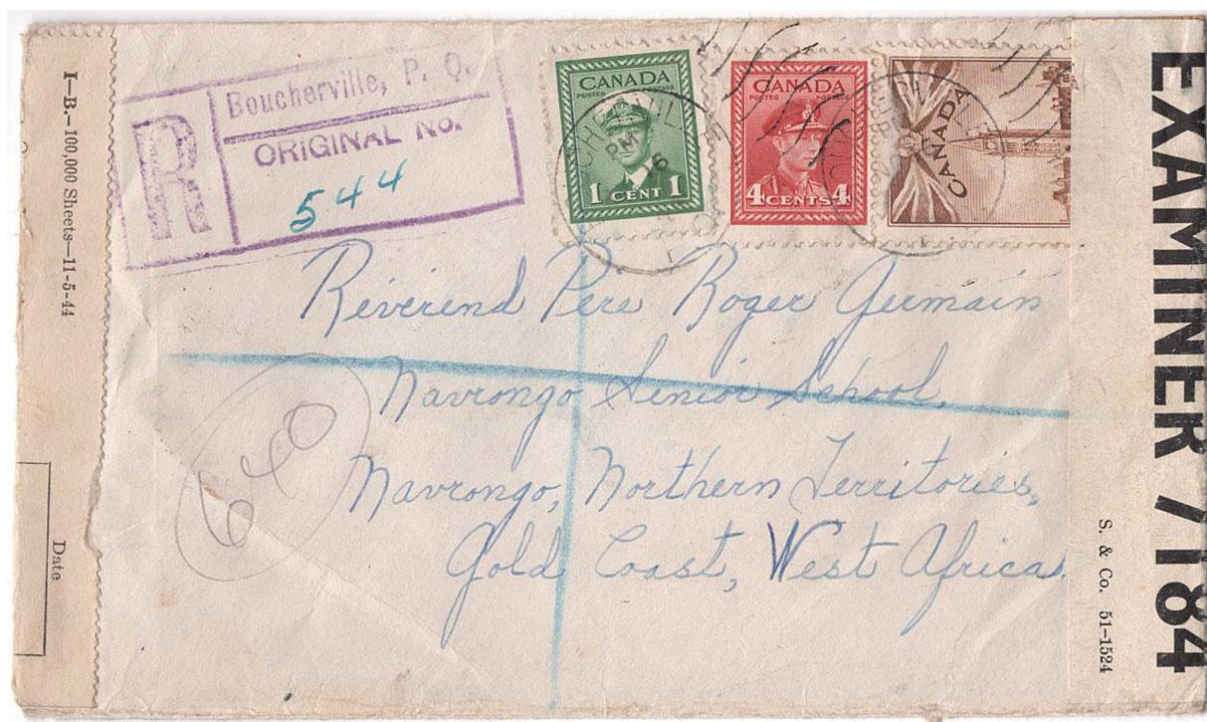 I-B.-100,000 Sheets-11-5-44
Date
R
Boucherville, P. Q.
ORIGINAL No.
544
CANADA
POSTES POSTAGE
1 CENT 1
CANADA
POSTES POSTAGE
4 CENTS 4
CANADA
PM
16
Réverend Pere Roger Germain
Navrongo Senior School,
Navrongo, Northern Territories,
Gold Coast, West Africa.
640
EXAMINER 7184
S. & Co. 51-1524